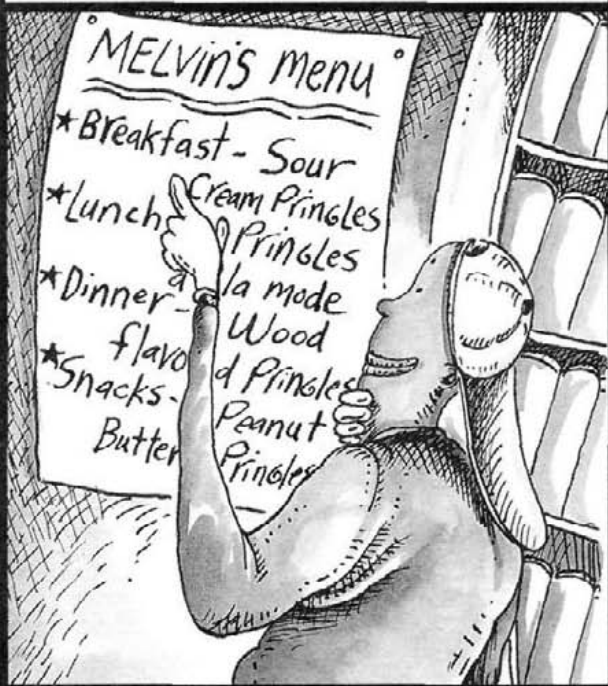 MELVIN'S Menu
★Breakfast - Sour
Cream PRINGLES
★Lunch PRINGLES
a la mode
★Dinner - Wood
flavo d PRINGLES
★Snacks - Peanut
Butter PRINGLES